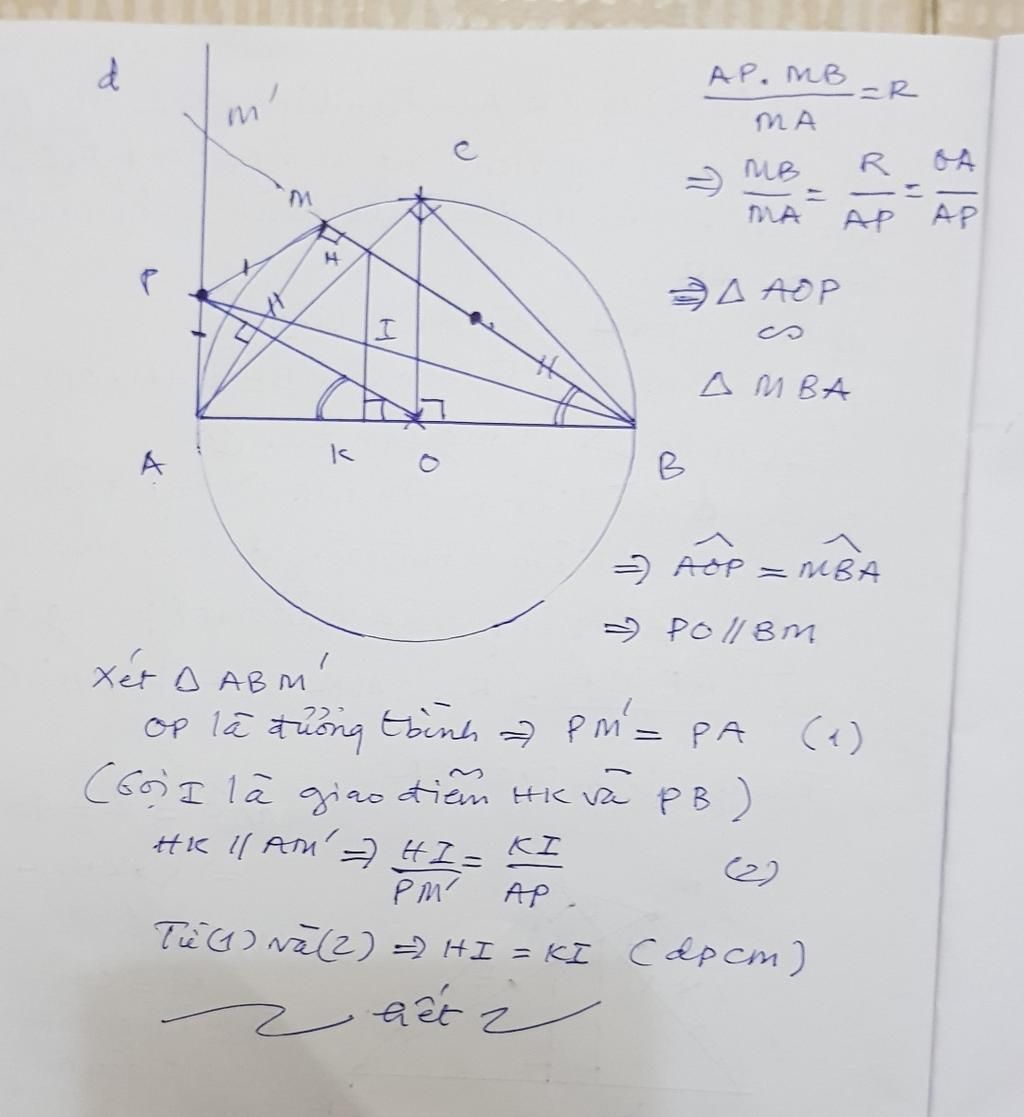 d
M'
C
M
H
P
H
I
H
A
K
O
B
AP. MB / MA = R
=> MB / MA = R / AP = OA / AP
=> Δ AOP
∽
Δ MBA
=> AÔP = MB̂A
=> PO // BM
Xét Δ ABM'
OP là đường tbình => PM' = PA (1)
(Gọi I là giao điểm HK và PB)
HK // AM' => HI / PM' = KI / AP . (2)
Từ (1) và (2) => HI = KI (đpcm)
hết